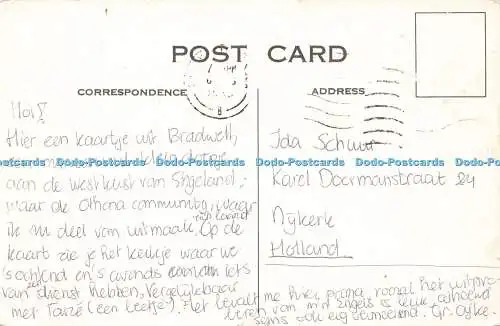 POST CARD
CORRESPONDENCE
ADDRESS
Hoi!
Hier een kaartje uit Bradwell,
aan de westkust van Engeland,
waar de Othona community, waar
ik nu deel van uitmaak, zich bevindt. Op de
kaart zie je het kerkje waar we
's ochtend en 's avonds iets
van een dienst hebben, Vergelijkbaar
met Taizé (een beetje). Het bevalt me hier prima, vooral het uitpro-
beren van m'n engels is leuk, alhoewel
soms ook erg vermoeiend. Gr.
Ida Schuur
Karel Doormanstraat 24
Nijkerk
Holland
Dodo-Postcards Dodo-Postcards Dodo-Postcards Dodo-Postcards Dodo-Postcards Dodo-Postcards